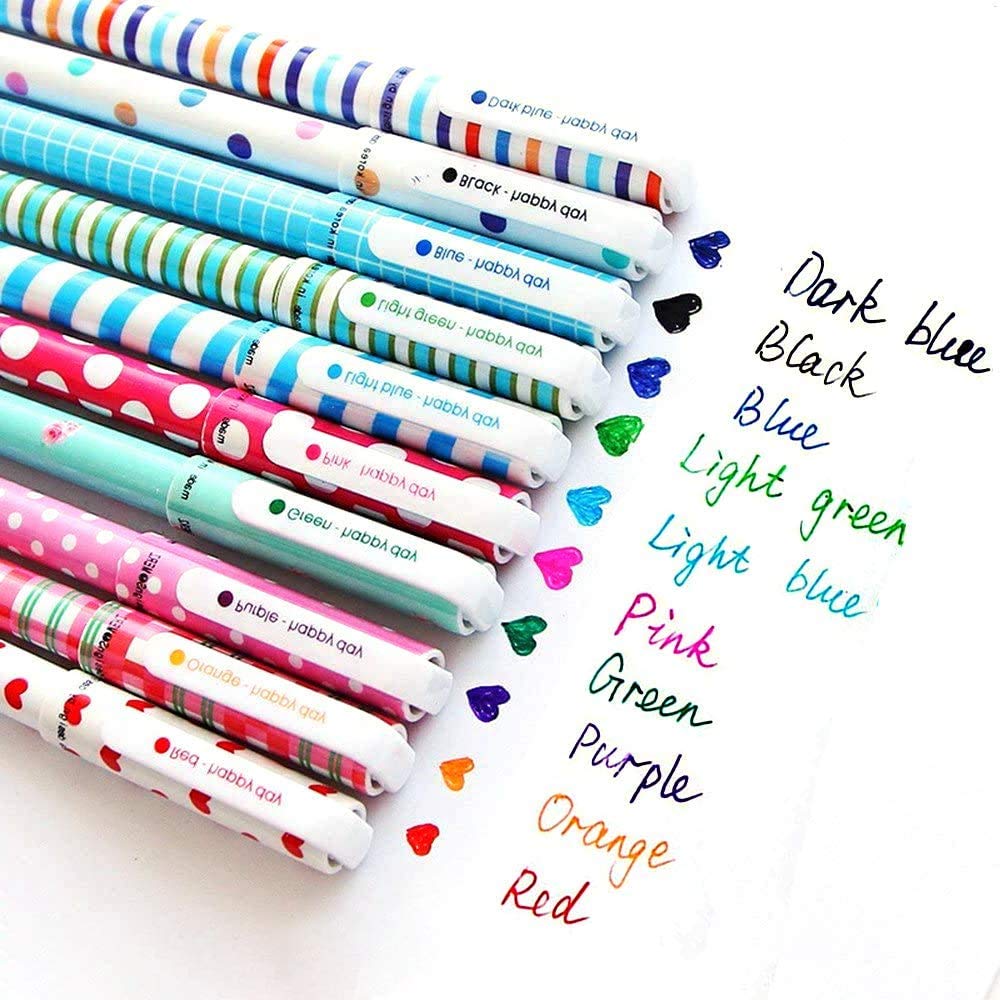 Dark blue - happy day
Black - happy day
Blue - happy day
Light green - happy day
Light blue - happy day
Pink - happy day
Green - happy day
Purple - happy day
Orange - happy day
Red - happy day
Dark blue
Black
Blue
Light green
Light blue
Pink
Green
Purple
Orange
Red